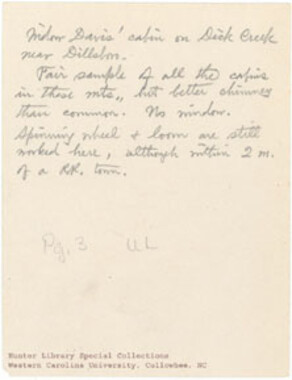 Widow Davis' cabin on Dick Creek
near Dillsboro.
Fair sample of all the cabins
in these mts., but better chimney
than common. No window.
Spinning wheel & loom are still
worked here, although within 2 m.
of a RR. town.
Pg. 3 UL
Hunter Library Special Collections
Western Carolina University, Cullowhee, NC